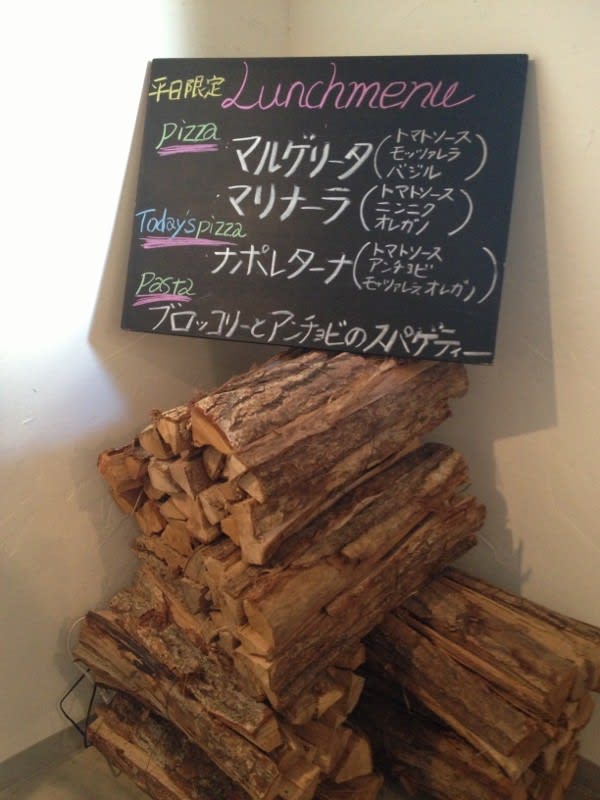 平日限定 Lunchmenu
pizza
マルゲリータ(トマトソース
モッツァレラ
バジル)
マリナーラ(トマトソース
ニンニク
オレガノ)
Today's pizza
ナポレターナ(トマトソース
アンチョビ
モッツァレラ、オレガノ)
Pasta
ブロッコリーとアンチョビのスパゲティー